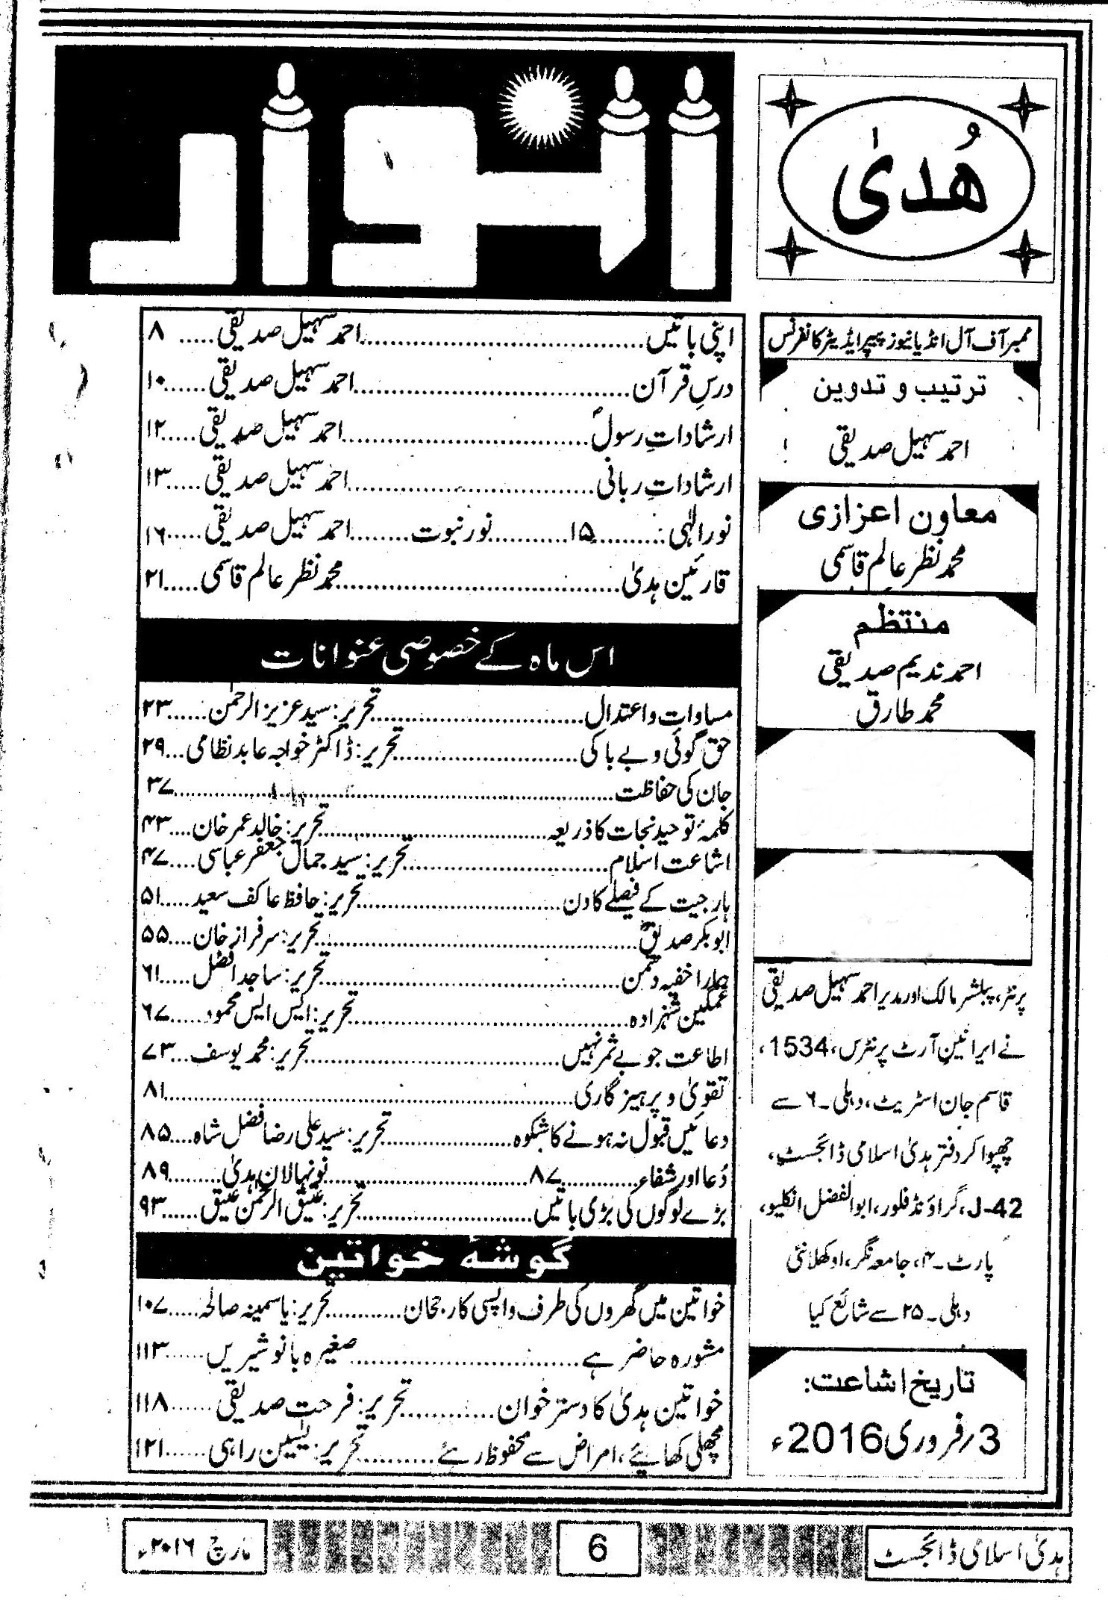 ھُدیٰ
انوار
ممبر آف آل انڈیا نیوز پیپر ایڈیٹر کانفرنس
ترتیب و تدوین
احمد سہیل صدیقی
معاون اعزازی
محمد نظر عالم قاسمی
منتظم
احمد ندیم صدیقی
محمد طارق
پرنٹر، پبلشر مالک اور مدیر احمد سہیل صدیقی
نے ایرانین آرٹ پرنٹرس، 1534،
قاسم جان اسٹریٹ، دہلی۔۶ سے
چھپوا کر دفتر ہدیٰ اسلامی ڈائجسٹ،
J-42، گراؤنڈ فلور، ابوالفضل انکلیو،
پارٹ۔۴، جامعہ نگر، اوکھلا نئی
دہلی۔۲۵ سے شائع کیا
تاریخ اشاعت:
3؍فروری 2016ء
اپنی باتیں..........احمد سہیل صدیقی.....۸
درسِ قرآن..........احمد سہیل صدیقی.....۱۰
ارشاداتِ رسولؐ..........احمد سہیل صدیقی.....۱۲
ارشاداتِ ربانی..........احمد سہیل صدیقی.....۱۳
نور الٰہی..........۱۵..........نور نبوت........احمد سہیل صدیقی.....۱۶
قارئین ہدیٰ..........محمد نظر عالم قاسمی.....۲۱
اس ماہ کے خصوصی عنوانات
مساوات و اعتدال..........تحریر: سید عزیز الرحمٰن.....۲۳
حق گوئی و بے باکی..........تحریر: ڈاکٹر خواجہ عابد نظامی...۲۹
جان کی حفاظت..........۳۷
کلمۂ توحید نجات کا ذریعہ..........تحریر: خالد عمر خان....۴۳
اشاعت اسلام..........تحریر: سید جمال جعفر عباسی.....۴۷
ہار جیت کے فیصلے کا دن..........تحریر: حافظ عاکف سعید.....۵۱
ابوبکر صدیقؓ..........تحریر: سرفراز خان....۵۵
ہمارا خفیہ دشمن..........تحریر: ساجد افضل.....۶۱
غمگین شہزادہ..........تحریر: ایس ایس محمود.....۶۷
اطاعت جو بے ثمر نہیں..........تحریر: محمد یوسف.....۷۳
تقویٰ و پرہیزگاری..........۸۱
دعائیں قبول نہ ہونے کا شکوہ..........تحریر: سید علی رضا فضل شاہ.....۸۵
دُعا اور شفاء..........۸۷..........نونہالان ہدیٰ.....۸۹
بڑے لوگوں کی بڑی باتیں..........تحریر: عتیق الرحمٰن عتیق.....۹۳
گوشۂ خواتین
خواتین میں گھروں کی طرف واپسی کا رجحان..........تحریر: یاسمینہ صالحہ.....۱۰۷
مشورہ حاضر ہے..........صغیرہ بانو شیریں.....۱۱۳
خواتین ہدیٰ کا دسترخوان..........تحریر: فرحت صدیقی.....۱۱۸
مچھلی کھائیے، امراض سے محفوظ رہئے..........تحریر: یٰسین راہی.....۱۲۱
ہدیٰ اسلامی ڈائجسٹ
6
مارچ ۲۰۱۶ء